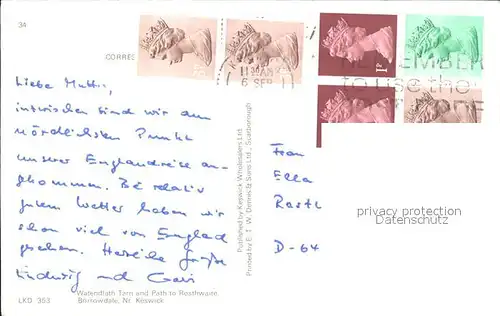 34
CORRE
11 30 AM
6 SEP
EMBER
to use the
1P
Liebe Mutti,
inzwischen sind wir am
nördlichsten Punkt
unserer Englandreise an-
gekommen. Bei relativ
gutem Wetter haben wir
schon viel von England
gesehen. Herzliche Grüße
und
Published by Keswick Wholesalers Ltd.
Printed by E. T. W. Dennis & Sons Ltd., Scarborough
Frau
Ella
D-64
privacy protection
Datenschutz
Watendlath Tarn and Path to Rosthwaite,
LKD 353 Borrowdale, Nr. Keswick